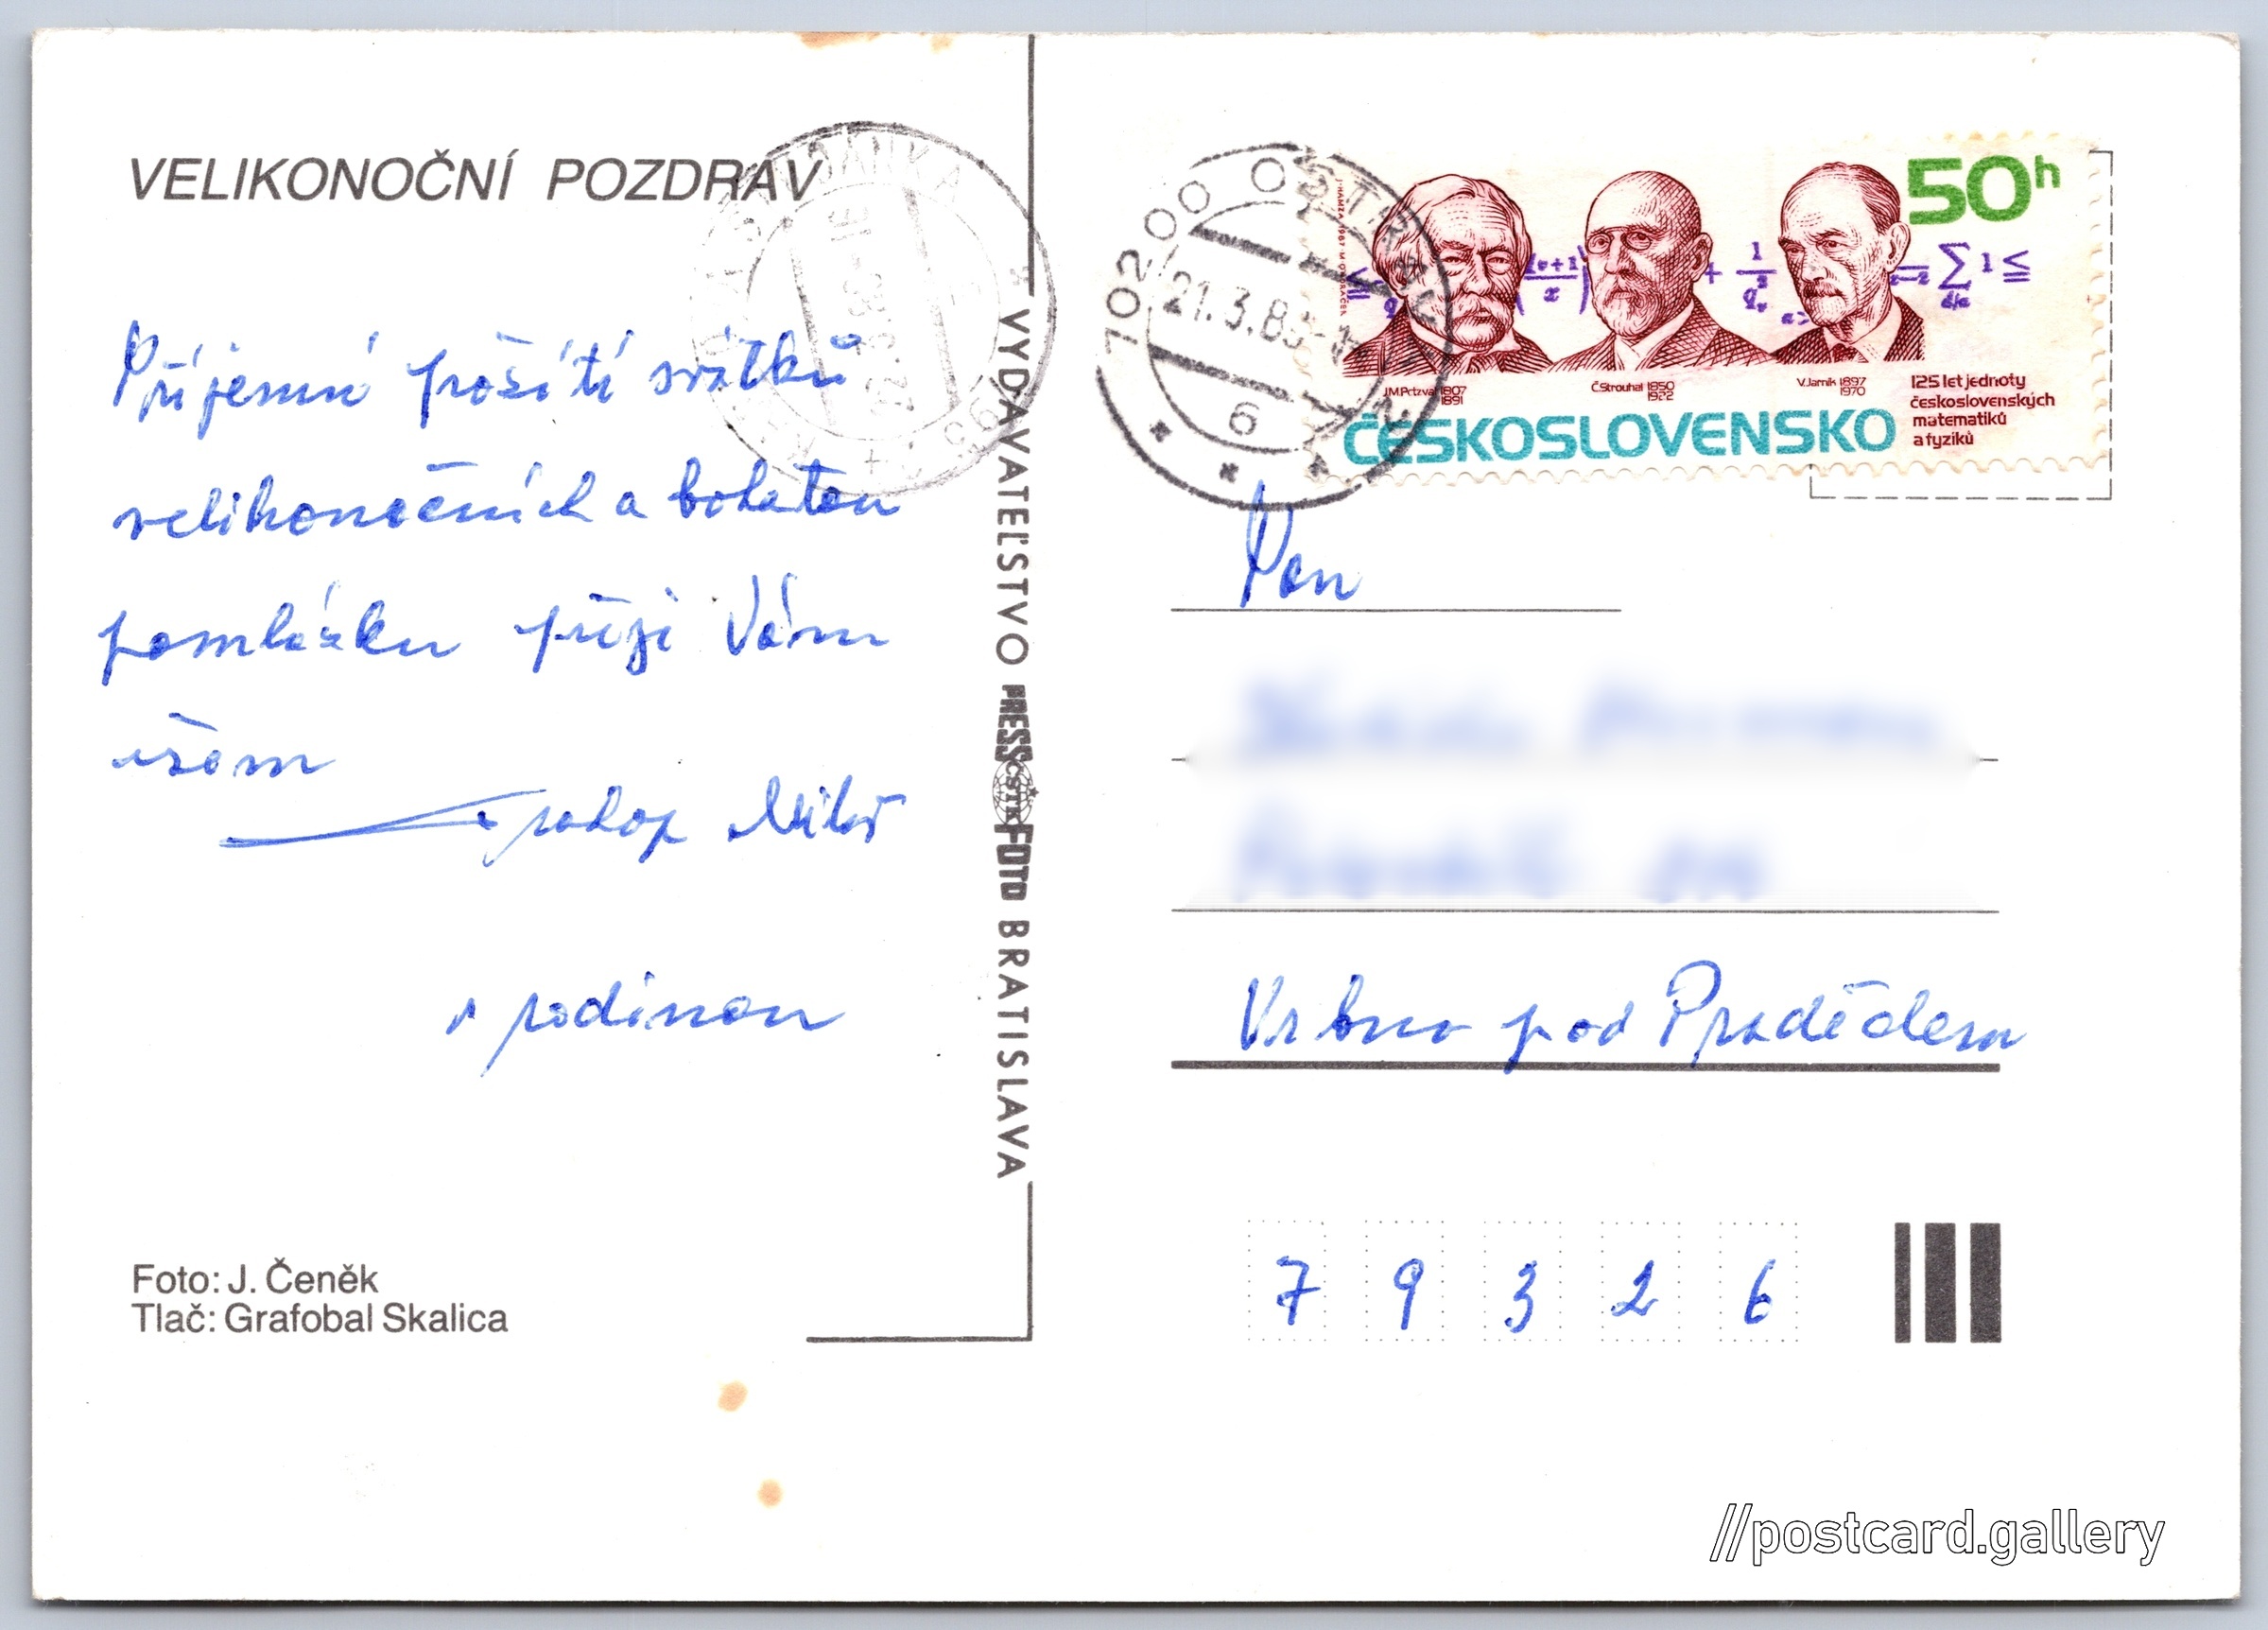 VELIKONOČNÍ POZDRAV
Příjemné prožití svátků
velikonočních a bohatou
pomlázku přeji Vám
všem
Prokop Miloš
s rodinou
Foto: J. Čeněk
Tlač: Grafobal Skalica
VYDAVATEĽSTVO PRESSFOTO BRATISLAVA
ČSTK
702 00 OSTRAVA
21.3.8
6
50h
J.M.Petzval 1807
1891
Č.Strouhal 1850
1922
V.Jarník 1897
1970
125 let jednoty
československých
matematiků
a fyziků
ČESKOSLOVENSKO
Pan
Vrbno pod Pradědem
7 9 3 2 6
//postcard.gallery